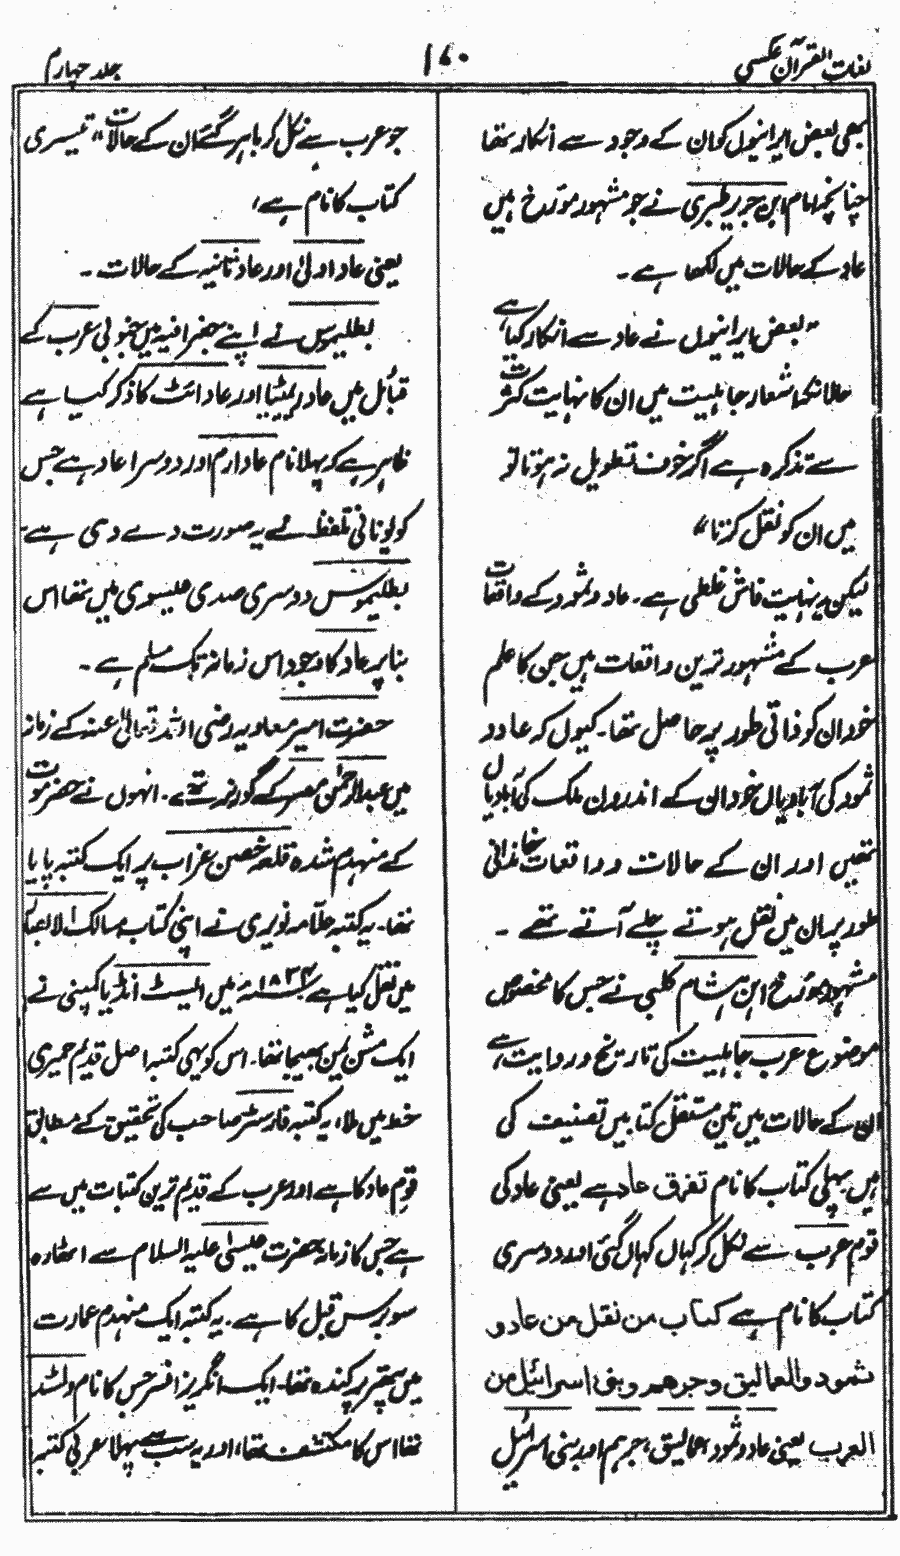 لغات القرآن عکسی
۱۷۰
جلد چہارم
بھی بعض ایرانیوں کو ان کے وجود سے انکار تھا
چنانچہ امام ابن جریر طبری نے جو مشہور مؤرخ ہیں
عاد کے حالات میں لکھا ہے۔
"بعض ایرانیوں نے عاد سے انکار کیا ہے
حالانکہ اشعار جاہلیت میں ان کا نہایت کثرت
سے تذکرہ ہے اگر خوف تطویل نہ ہوتا تو
میں ان کو نقل کرتا"
لیکن یہ نہایت فاش غلطی ہے۔ عاد و ثمود کے واقعات
عرب کے مشہور ترین واقعات ہیں جن کا علم
خود ان کو ذاتی طور پر حاصل تھا۔ کیوں کہ عاد و
ثمود کی آبادیاں خود ان کے اندرون ملک کی آبادیاں
تھیں اور ان کے حالات و واقعات خاندانی
طور پر ان میں نقل ہوتے چلے آتے تھے۔
مشہور مؤرخ ابن ہشام کلبی نے جس کا مخصوص
موضوع عرب جاہلیت کی تاریخ و روایت ہے،
ان کے حالات میں تین مستقل کتابیں تصنیف کی
ہیں پہلی کتاب کا نام تفرق عاد ہے یعنی عاد کی
قوم عرب سے نکل کر کہاں کہاں گئی اور دوسری
کتاب کا نام ہے کتاب من نقل من عاد و
ثمود والعمالیق وجرھم وبنی اسرائیل من
العرب یعنی عاد و ثمود، عمالیق، جرہم اور بنی اسرائیل
جو عرب سے نکل کر باہر گئے ان کے حالات" تیسری
کتاب کا نام ہے،
یعنی عاد اولیٰ اور عاد ثانیہ کے حالات۔
بطلیموس نے اپنے جغرافیہ میں جنوبی عرب کے
قبائل میں عادرمیٹیا اور عاد ائٹ کا ذکر کیا ہے
ظاہر ہے کہ پہلا نام عاد ارم اور دوسرا عاد ہے جس
کو یونانی تلفظ نے یہ صورت دے دی ہے
بطلیموس دوسری صدی عیسوی میں تھا اس
بنا پر عاد کا وجود اس زمانہ تک مسلم ہے۔
حضرت امیر معاویہ رضی اللہ تعالیٰ عنہ کے زمانہ
میں عبدالرحمٰن مصر کے گورنر تھے۔ انہوں نے حضرموت
کے منہدم شدہ قلعہ حصن غراب پر ایک کتبہ پایا
تھا۔ یہ کتبہ علامہ نویری نے اپنی کتاب مسالک الابصار
میں نقل کیا ہے ۱۸۳۴ء میں ایسٹ انڈیا کمپنی نے
ایک مشن یمن بھیجا تھا۔ اس کو یہی کتبہ اصل قدیم حمیری
خط میں ملا، یہ کتبہ فارسٹر صاحب کی تحقیق کے مطابق
قوم عاد کا ہے اور عرب کے قدیم ترین کتبات میں سے
ہے جس کا زمانہ حضرت عیسیٰ علیہ السلام سے اٹھارہ
سو برس قبل کا ہے۔ یہ کتبہ ایک منہدم عمارت
میں پتھر پر کندہ تھا۔ ایک انگریز افسر جس کا نام ولسٹڈ
تھا اس کا مکتشف تھا، اور یہ سب سے پہلا عربی کتبہ